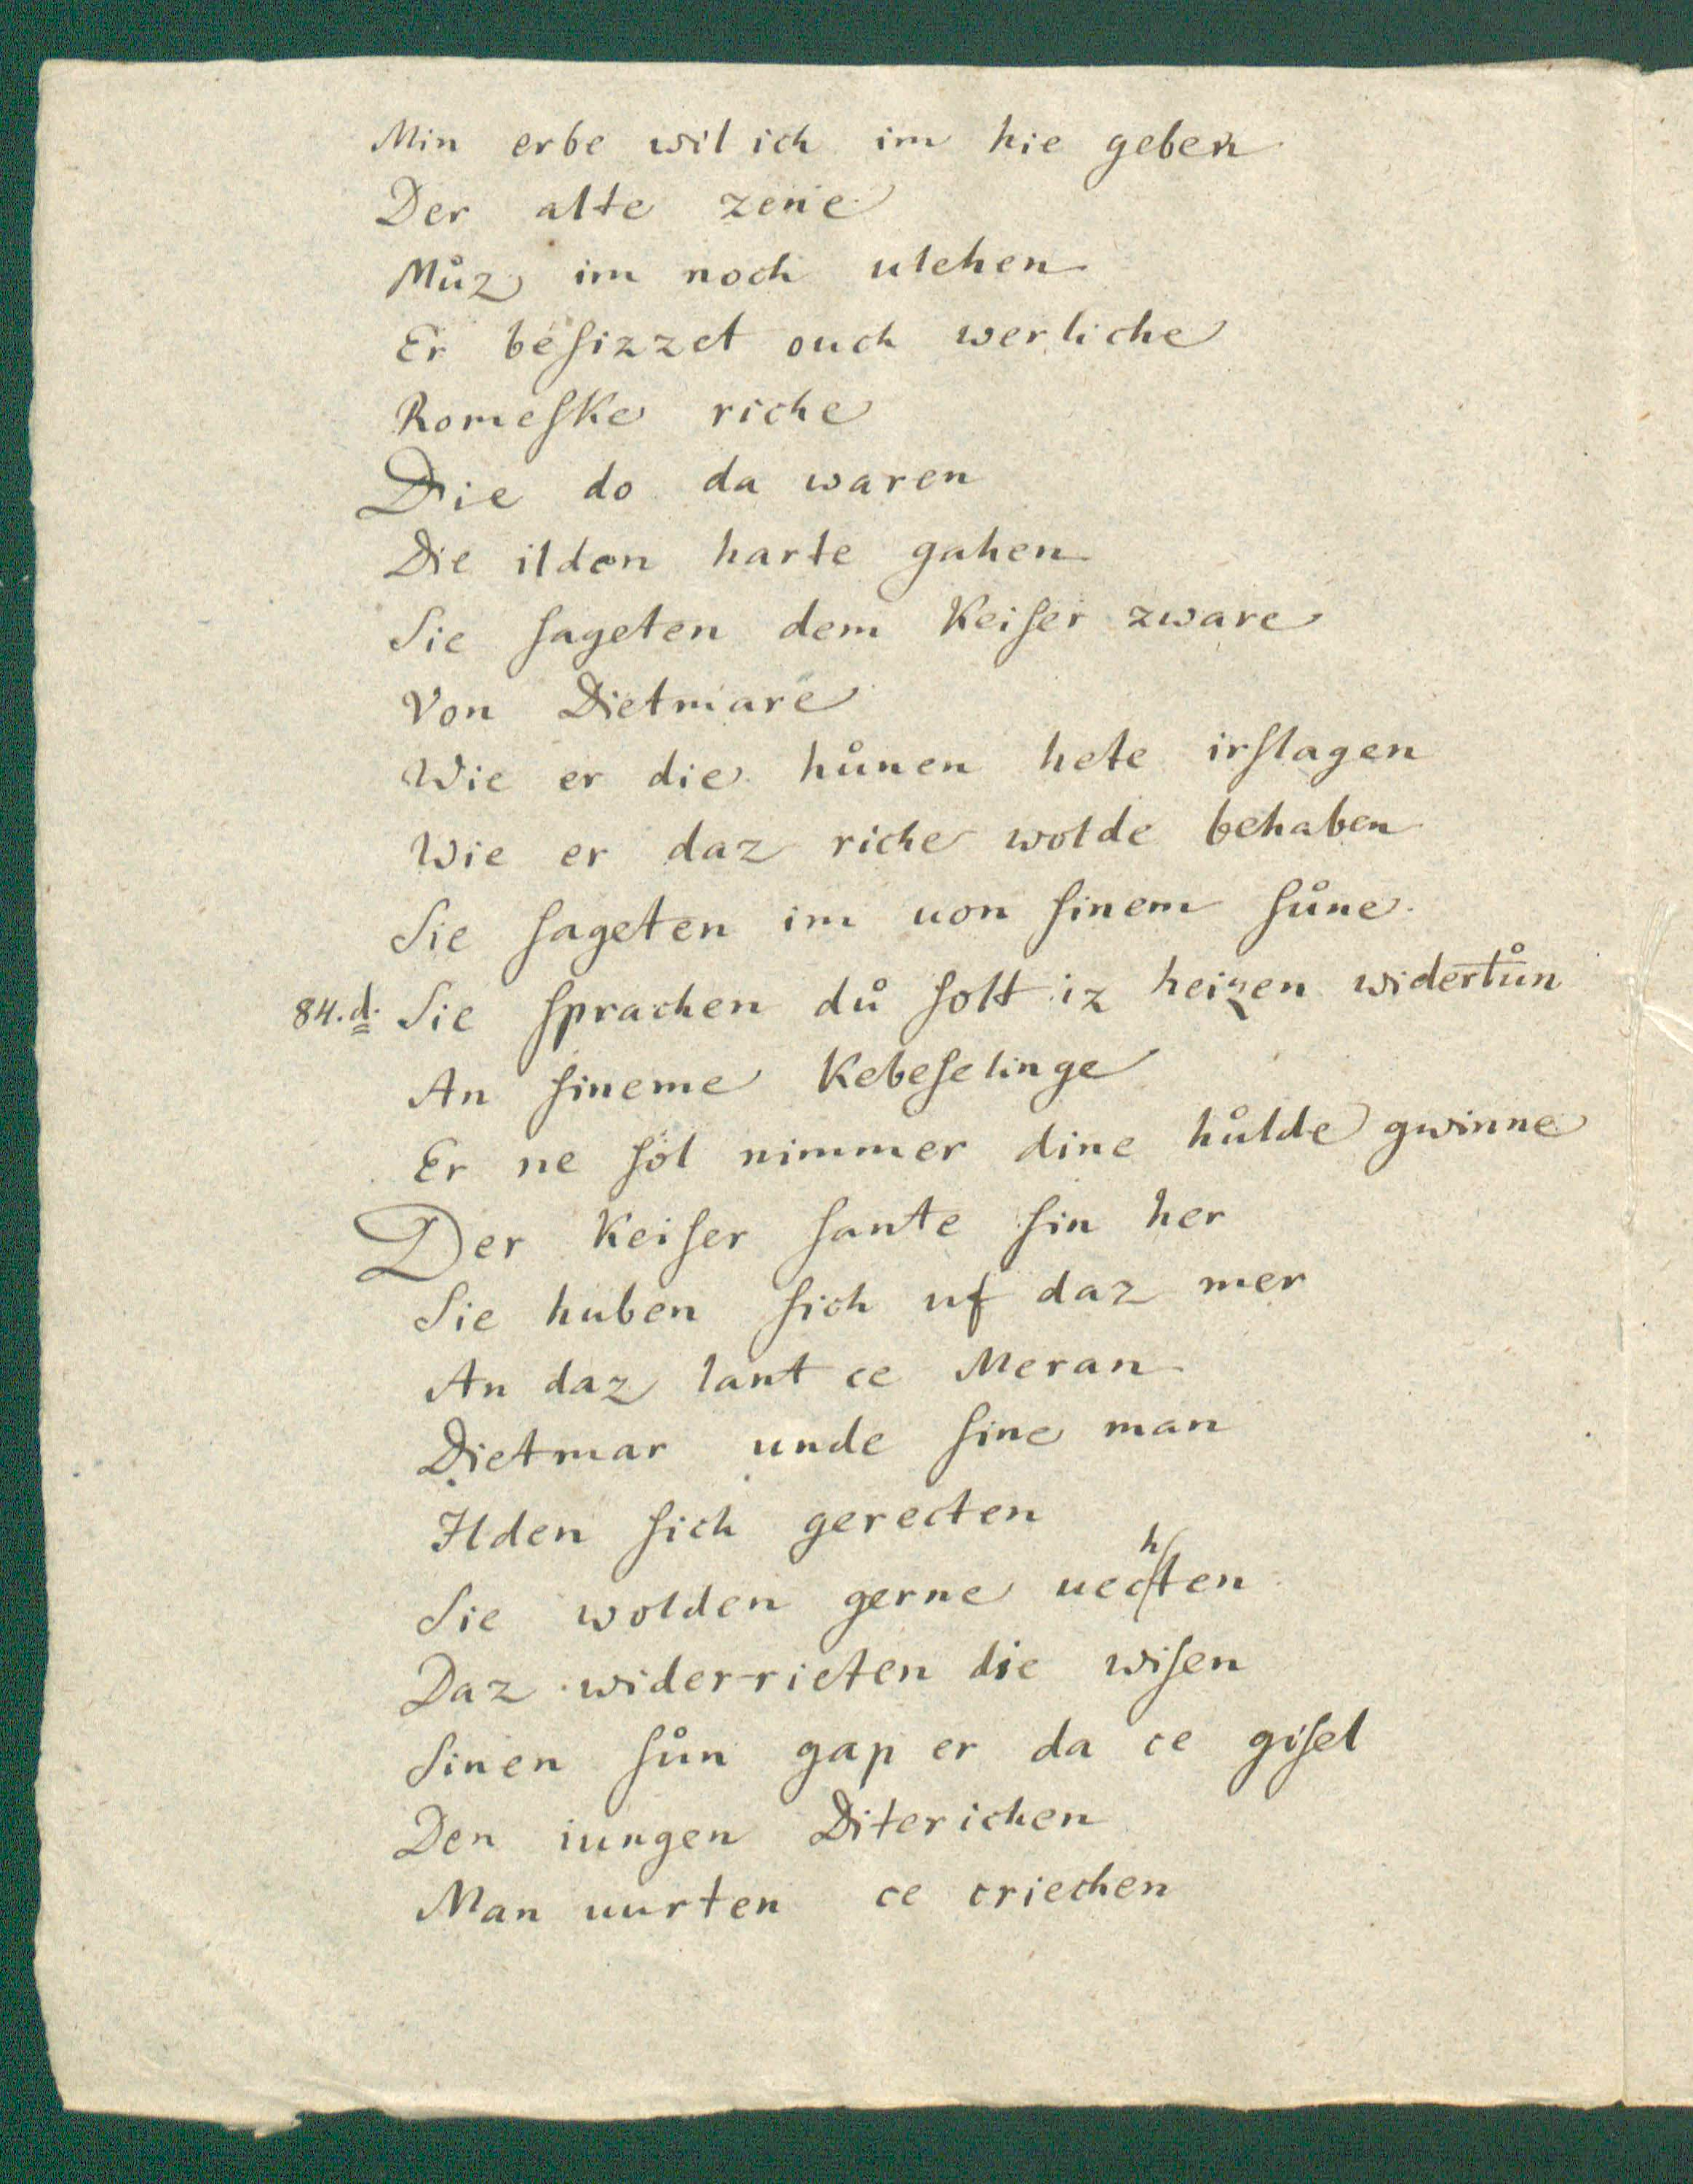 Min erbe wil ich im hie geben
Der alte zene
Můz im noch ulehen
Er beſizzet ouch werliche
Romeſke riche
Die do da waren
Die ilden harte gahen
Sie ſageten dem Keiſer zware
Von Dietmare
Wie er die hůnen hete irſlagen
Wie er daz riche wolde behaben
Sie ſageten im uon ſinem ſůne
84.d. Sie ſprachen dů ſolt iz heizen widertůn
An ſineme Kebeſelinge
Er ne ſol nimmer dine hůlde gwinne
Der Keiſer ſante ſin her
Sie huben ſich uf daz mer
An daz lant ce Meran
Dietmar unde ſine man
Ilden ſich gerecten
Sie wolden gerne uechten
Daz wider-rieten die wiſen
Sinen ſůn gap er da ce giſel
Den iungen Diterichen
Man uurten ce criechen